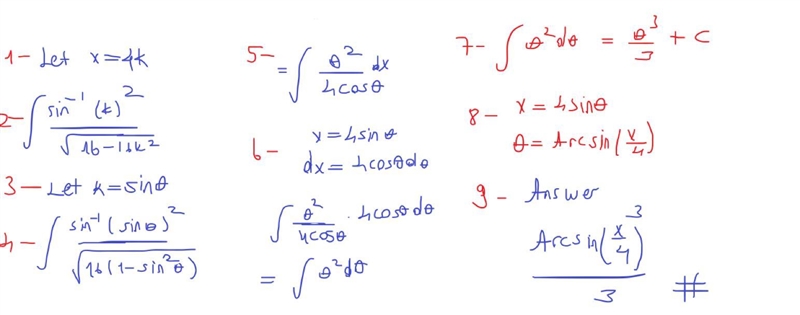 1- Let x=4k
2- ∫ sin⁻¹(k)² / √(16-16k²)
3- Let k=sinθ
4- ∫ sin⁻¹(sinθ)² / √(16(1-sin²θ))
5- = ∫ θ²/(4cosθ) dx
6- x=4sinθ
dx=4cosθdθ
∫ θ²/(4cosθ) · 4cosθdθ
= ∫ θ²dθ
7- ∫ θ²dθ = θ³/3 + C
8- x=4sinθ
θ= Arcsin(x/4)
9- Answer
Arcsin(x/4)³ / 3 #